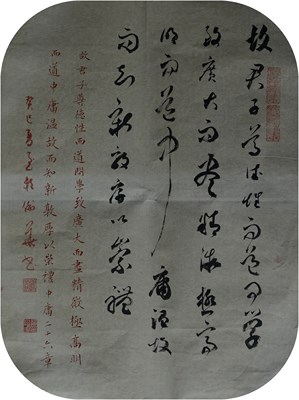 故君子尊德性而道问学
致廣大而盡精微極高
明而道中庸温故
而知新敦厚以崇禮
故君子尊德性而道問學致廣大而盡精微極高明
而道中庸温故而知新敦厚以崇禮中庸二十六章
癸巳夏至